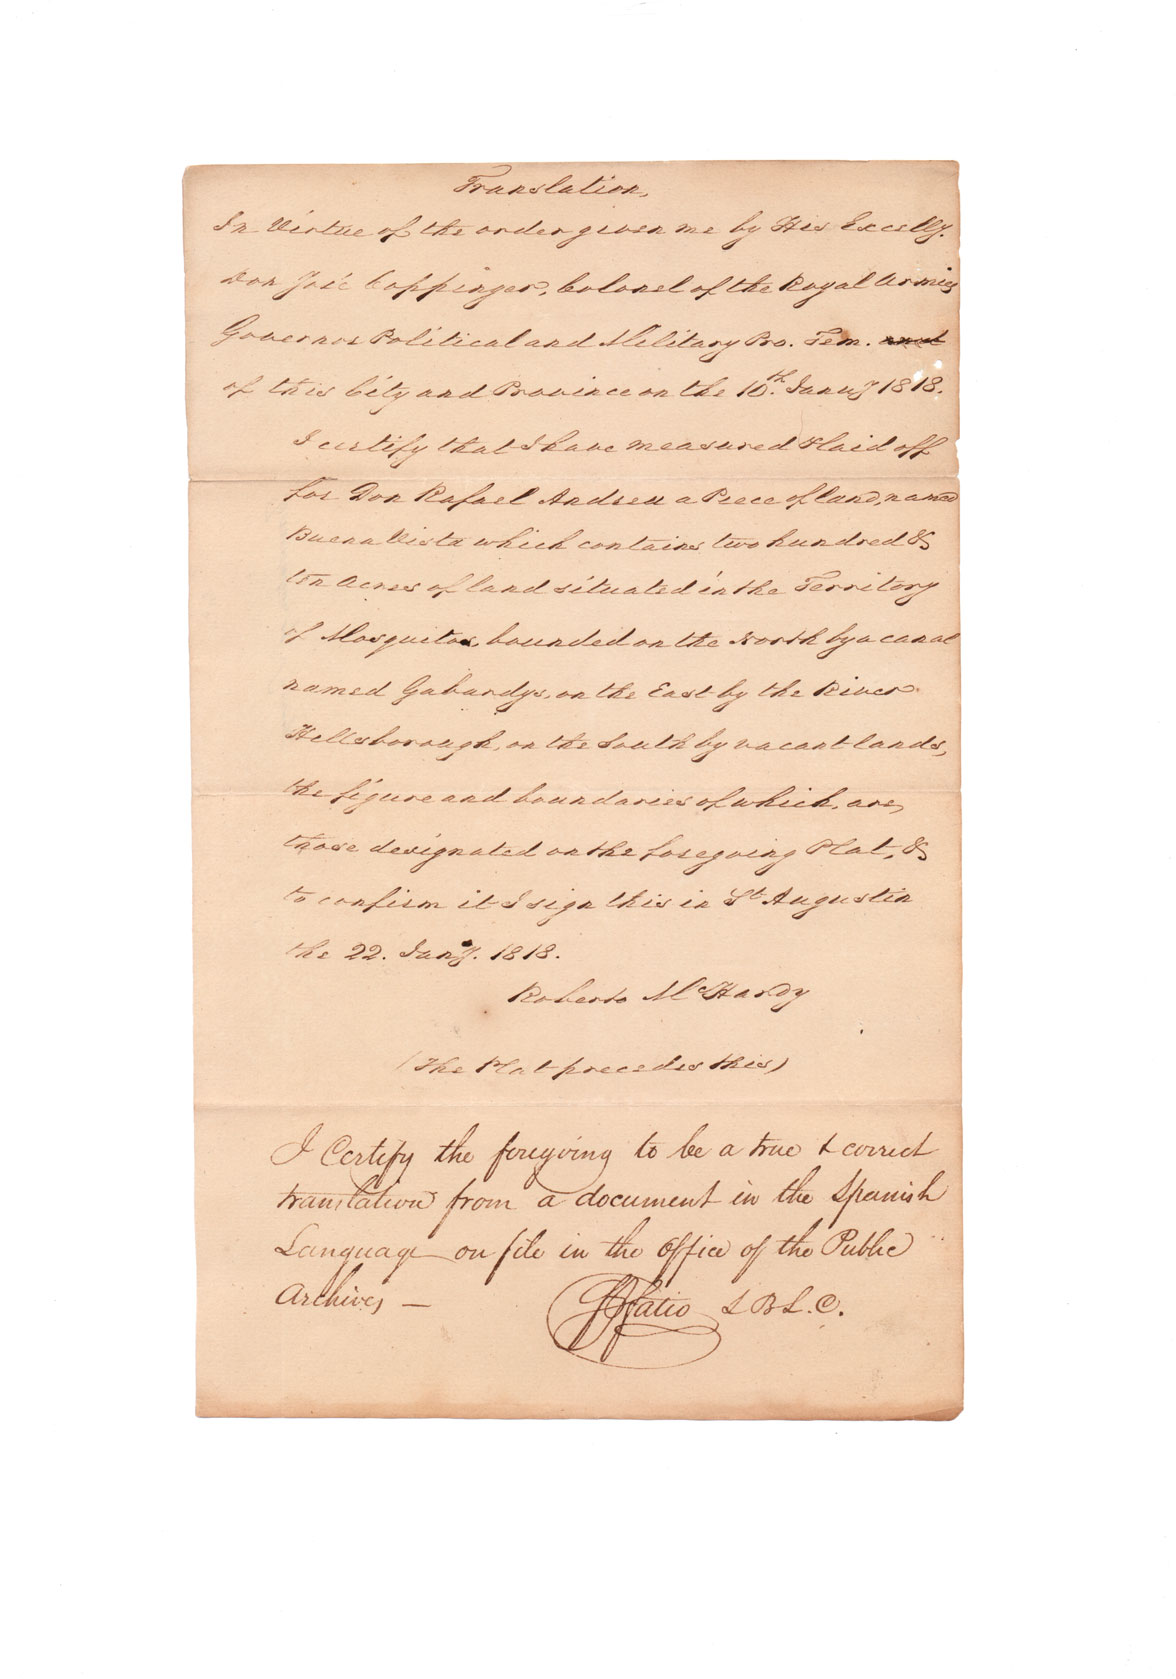 Translation,
In Virtue of the order given me by His Excelly.
Don José Coppinger, Colonel of the Royal Armies
Governor Political and Military Pro. Tem. and
of this City and Province on the 10th. Jany 1818.
I certify that I have measured & laid off
for Don Rafael Andreu a Peece of land, named
Buena Vista which contains two hundred &
ten Acres of land situated in the Territory
of Mosquitos, bounded on the North by a canal
named Gabardys, on the East by the River
Hillsborough, on the South by vacant lands,
the figure and boundaries of which, are,
those designated on the foregoing Plat, &
to confirm it I sign this in St Augustin
the 22. Jany. 1818.
Roberto McHardy
(The Plat precedes this)
I Certify the foregoing to be a true & correct
translation from a document in the Spanish
Language on file in the Office of the Public
Archives —
Fatio S B L. C.